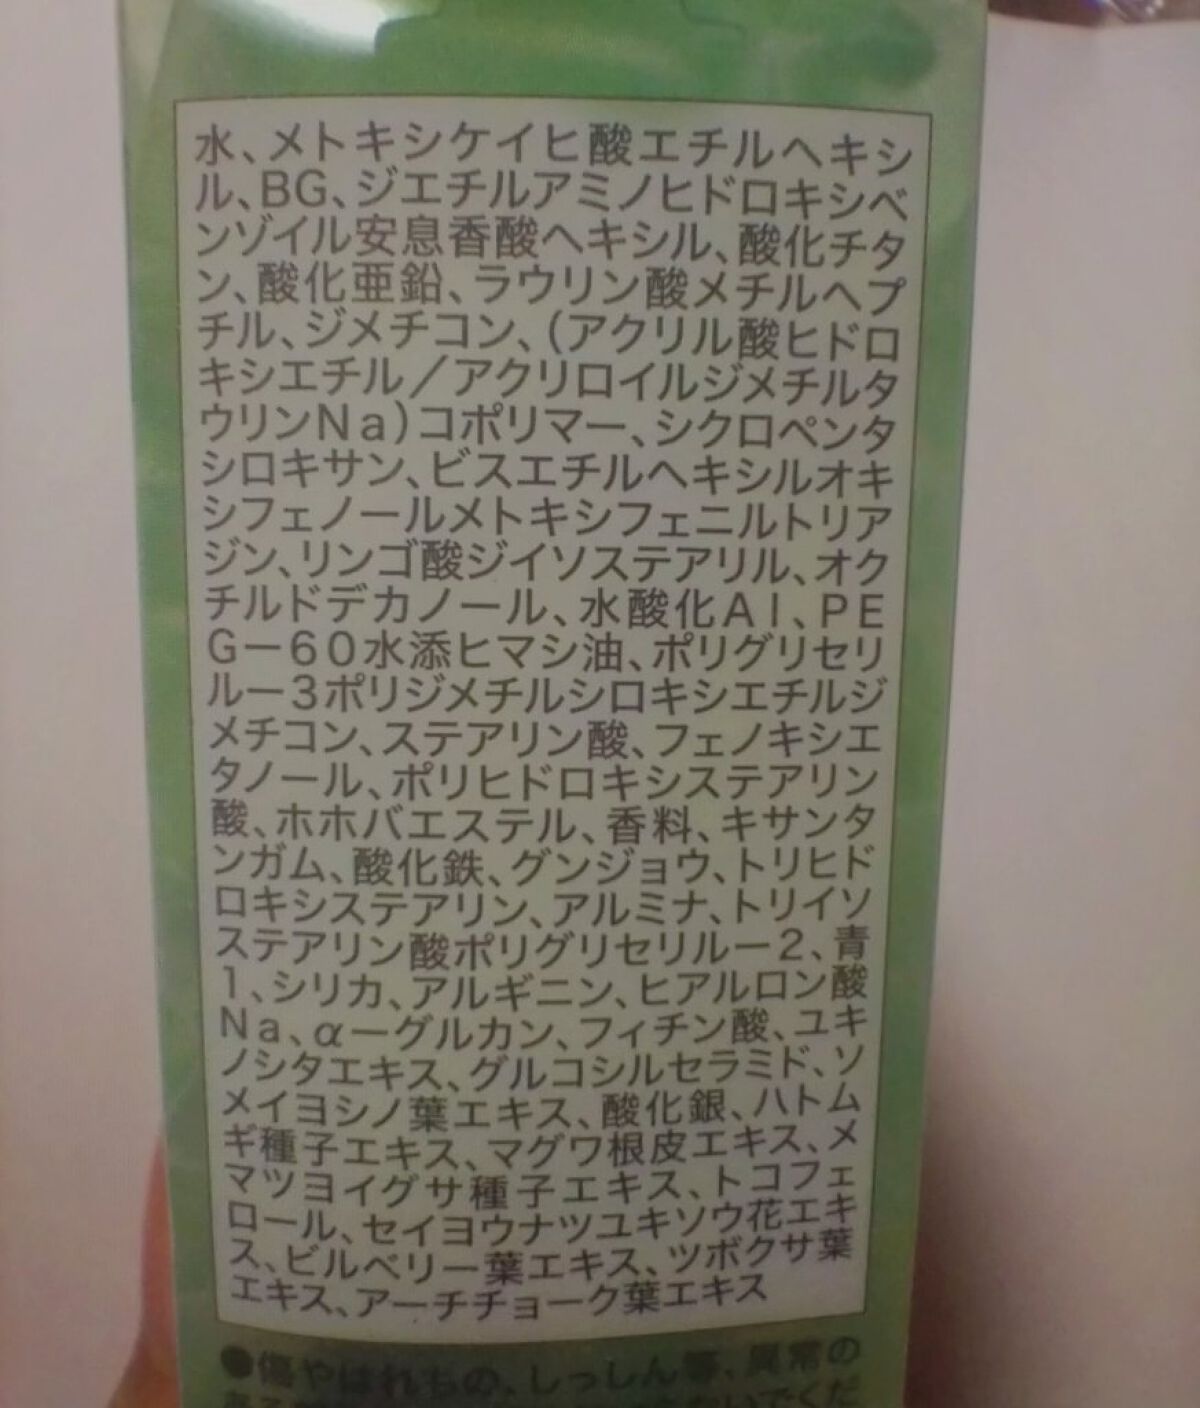 水、メトキシケイヒ酸エチルヘキシ
ル、BG、ジエチルアミノヒドロキシベ
ンゾイル安息香酸ヘキシル、酸化チタ
ン、酸化亜鉛、ラウリン酸メチルヘプ
チル、ジメチコン、(アクリル酸ヒドロ
キシエチル/アクリロイルジメチルタ
ウリンNa)コポリマー、シクロペンタ
シロキサン、ビスエチルヘキシルオキ
シフェノールメトキシフェニルトリア
ジン、リンゴ酸ジイソステアリル、オク
チルドデカノール、水酸化Al、PE
G－60水添ヒマシ油、ポリグリセリ
ル－3ポリジメチルシロキシエチルジ
メチコン、ステアリン酸、フェノキシエ
タノール、ポリヒドロキシステアリン
酸、ホホバエステル、香料、キサンタ
ンガム、酸化鉄、グンジョウ、トリヒド
ロキシステアリン、アルミナ、トリイソ
ステアリン酸ポリグリセリル－2、青
1、シリカ、アルギニン、ヒアルロン酸
Na、α－グルカン、フィチン酸、ユキ
ノシタエキス、グルコシルセラミド、ソ
メイヨシノ葉エキス、酸化銀、ハトム
ギ種子エキス、マグワ根皮エキス、メ
マツヨイグサ種子エキス、トコフェ
ロール、セイヨウナツユキソウ花エキ
ス、ビルベリー葉エキス、ツボクサ葉
エキス、アーチチョーク葉エキス
●傷やはれもの、しっしん等、異常の